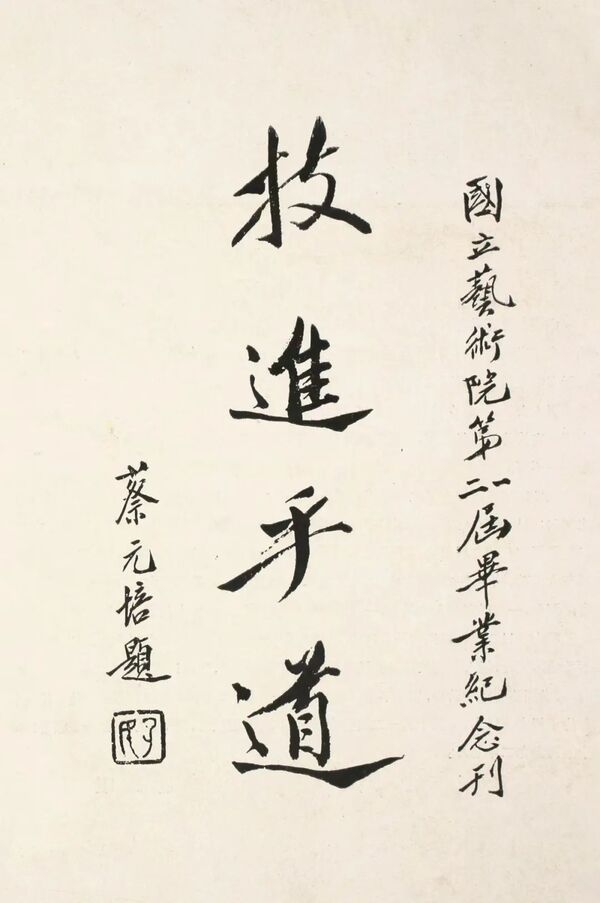 國立藝術院第一二屆畢業紀念刊
技進乎道
蔡元培題
孑民